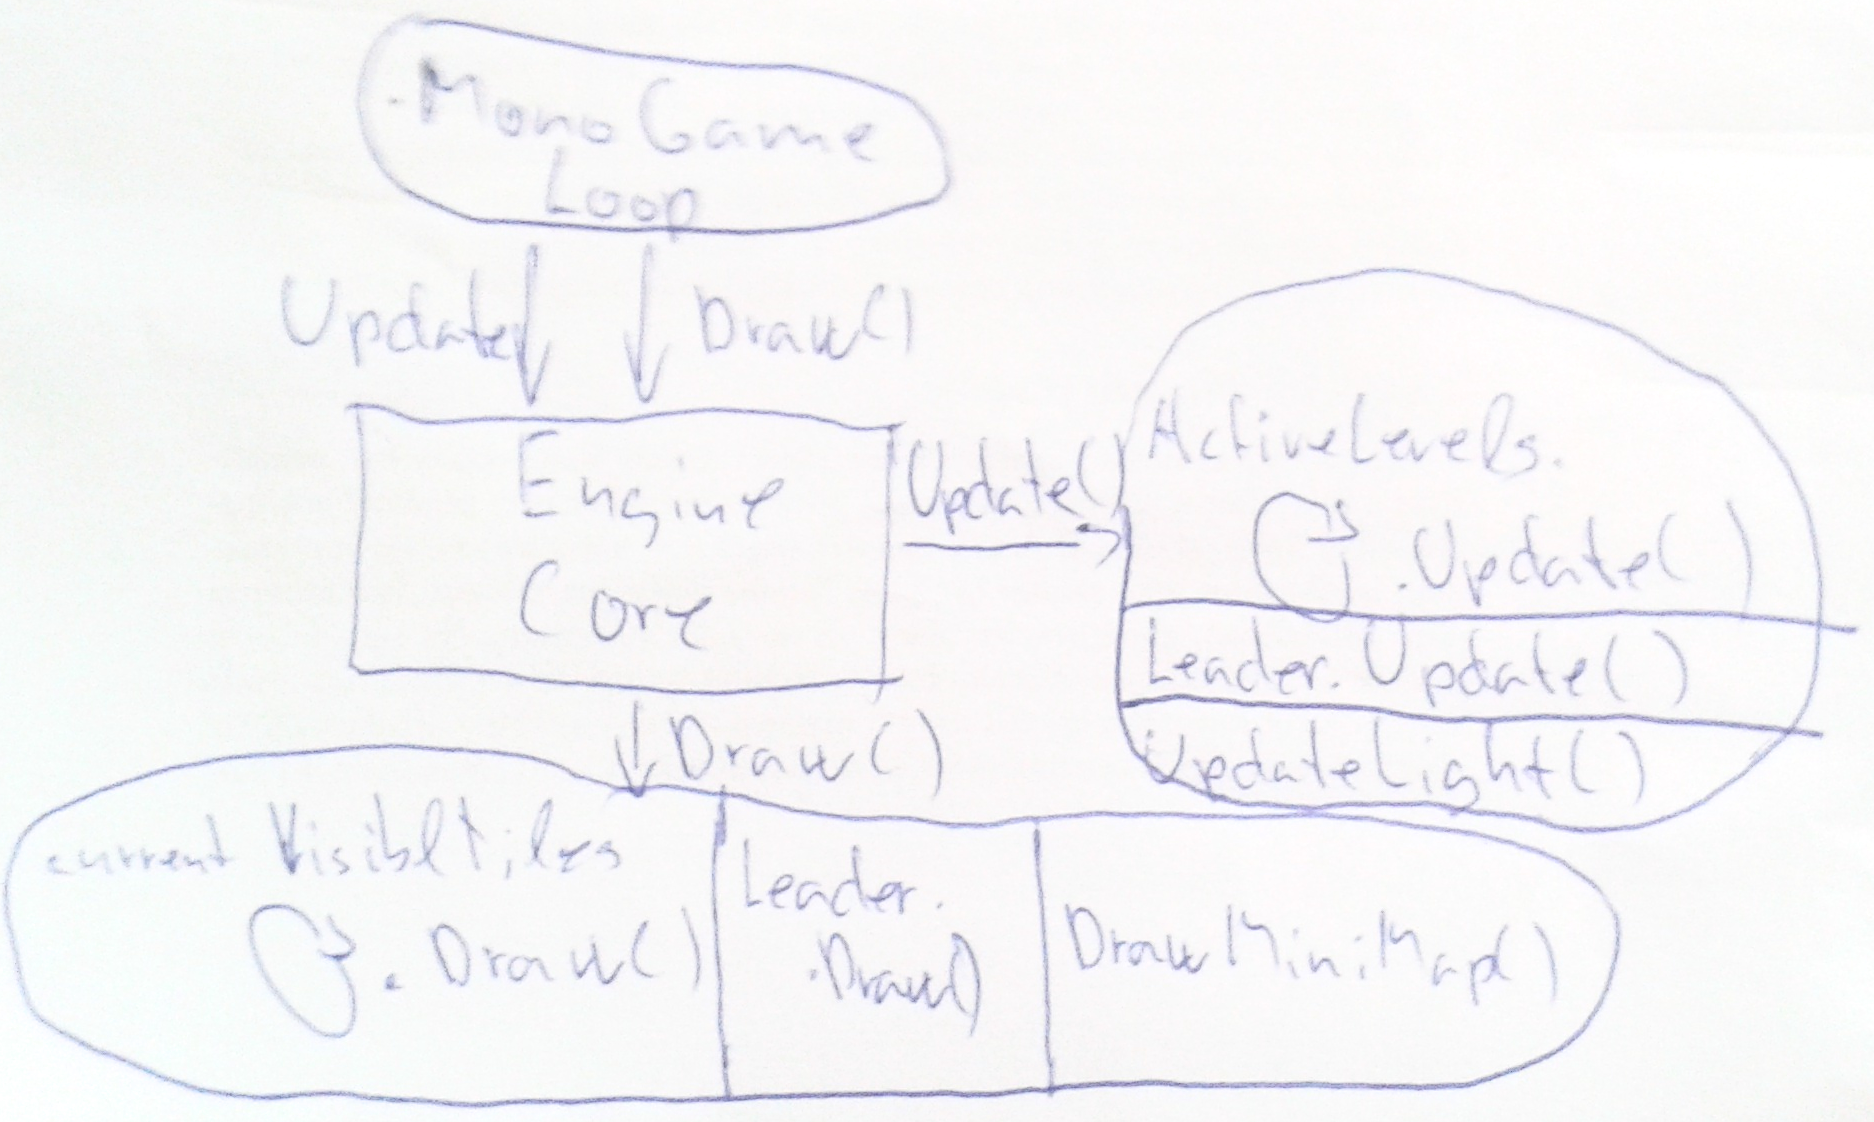 MonoGame
Loop
Update
Draw()
Engine
Core
Update()
ActiveLevels.
.Update()
Leader.Update()
UpdateLight()
Draw()
current VisiblTiles
.Draw()
Leader.
.Draw()
DrawMiniMap()